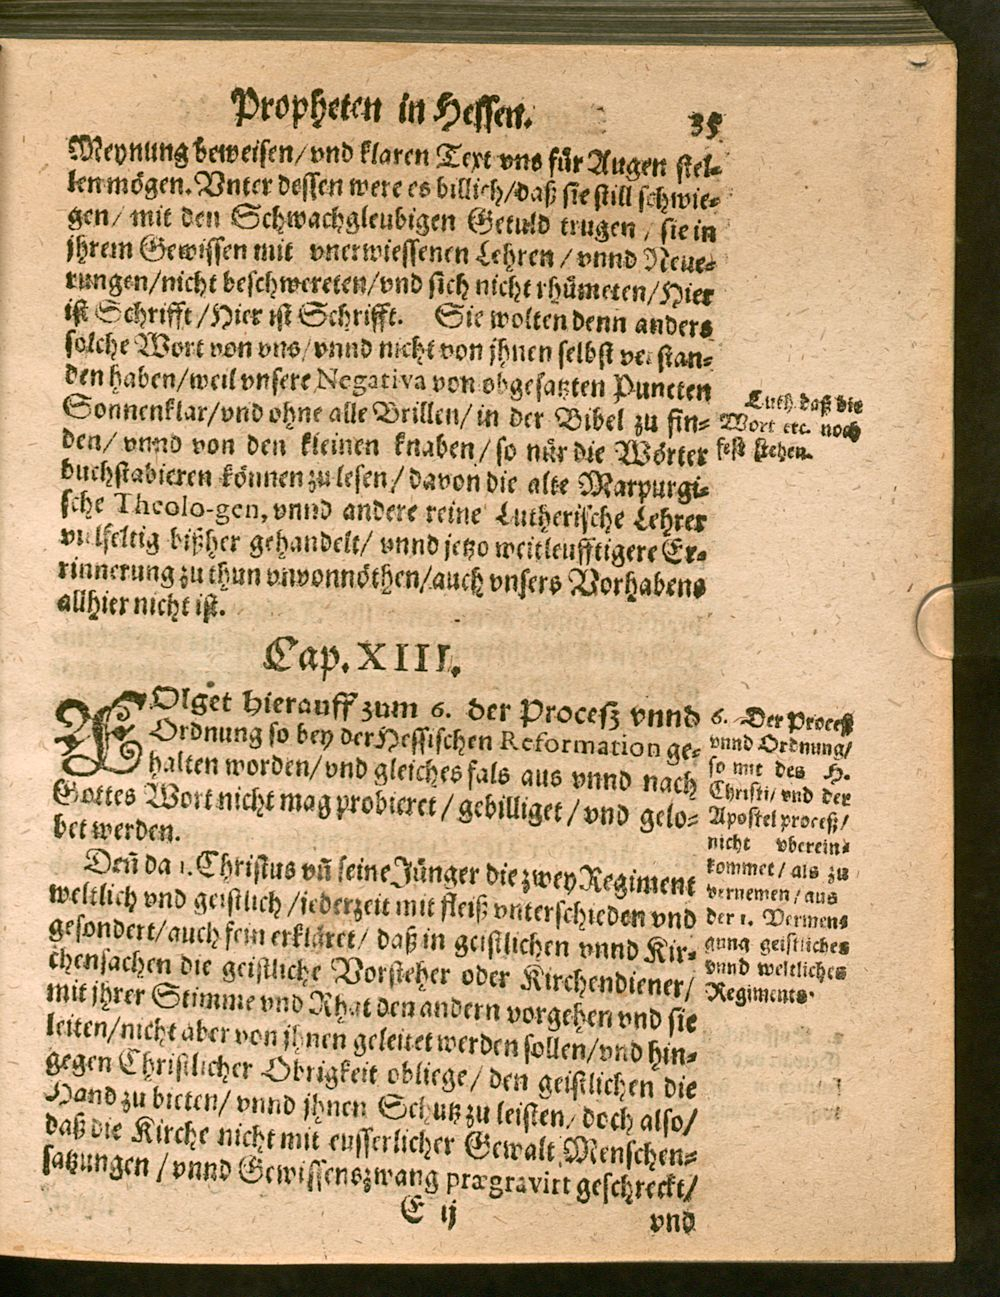 Propheten in Hessen. 35
Meynung beweisen/ vnd klaren Text vns für Augen stel-
len mögen. Vnter dessen were es billich/ daß sie still schwie-
gen/ mit den Schwachgleubigen Getuld trugen/ sie in
jhrem Gewissen mit vnerwiessenen Lehren/ vnnd Neue-
rungen/ nicht beschwereten/ vnd sich nicht rhümeten/ Hier
ist Schrifft/ Hier ist Schrifft. Sie wolten denn anders
solche Wort von vns/ vnnd nicht von jhnen selbst verstan-
den haben/ weil vnsere Negativa von obgesatzten Puncten
Sonnenklar/ vnd ohne alle Brillen/ in der Bibel zu fin-
den/ vnnd von den kleinen knaben/ so nür die Wörter
buchstabieren können zu lesen/ davon die alte Marpurgi-
sche Theolo-gen, vnnd andere reine Lutherische Lehrer
vielfeltig bißher gehandelt/ vnnd jetzo weitleufftigere Er-
rinnerung zu thun vnvonnöthen/ auch vnsers Vorhabens
allhier nicht ist.
Luth. daß die
Wort etc. noch
fest stehen.
Cap. XIII.
FOlget hierauff zum 6. der Proceß vnnd
Ordnung so bey der Hessischen Reformation ge-
halten worden/ vnd gleiches fals aus vnnd nach
Gottes Wort nicht mag probieret/ gebilliget/ vnd gelo-
bet werden.
Deñ da 1. Christus vñ seine Jünger die zwey Regiment
weltlich vnd geistlich/ jederzeit mit fleiß vnterschieden vnd
gesondert/ auch fein erkläret/ daß in geistlichen vnnd Kir-
chensachen die geistliche Vorsteher oder Kirchendiener/
mit jhrer Stimme vnd Rhat den andern vorgehen vnd sie
leiten/ nicht aber von jhnen geleitet werden sollen/ vnd hin-
gegen Christlicher Obrigkeit obliege/ den geistlichen die
Hand zu bieten/ vnnd jhnen Schutz zu leisten/ doch also/
daß die Kirche nicht mit eusserlicher Gewalt Menschen-
satzungen/ vnnd Gewissenszwang prægravirt geschreckt/
6. Der Proceß
vnnd Ordnung/
so mit des H.
Christi/ vnd der
Apostel proceß/
nicht vberein-
kommet/ als zu
vernemen/ aus
der 1. Vermen-
gung geistliches
vnnd weltliches
Regiments.
E ij
vnd